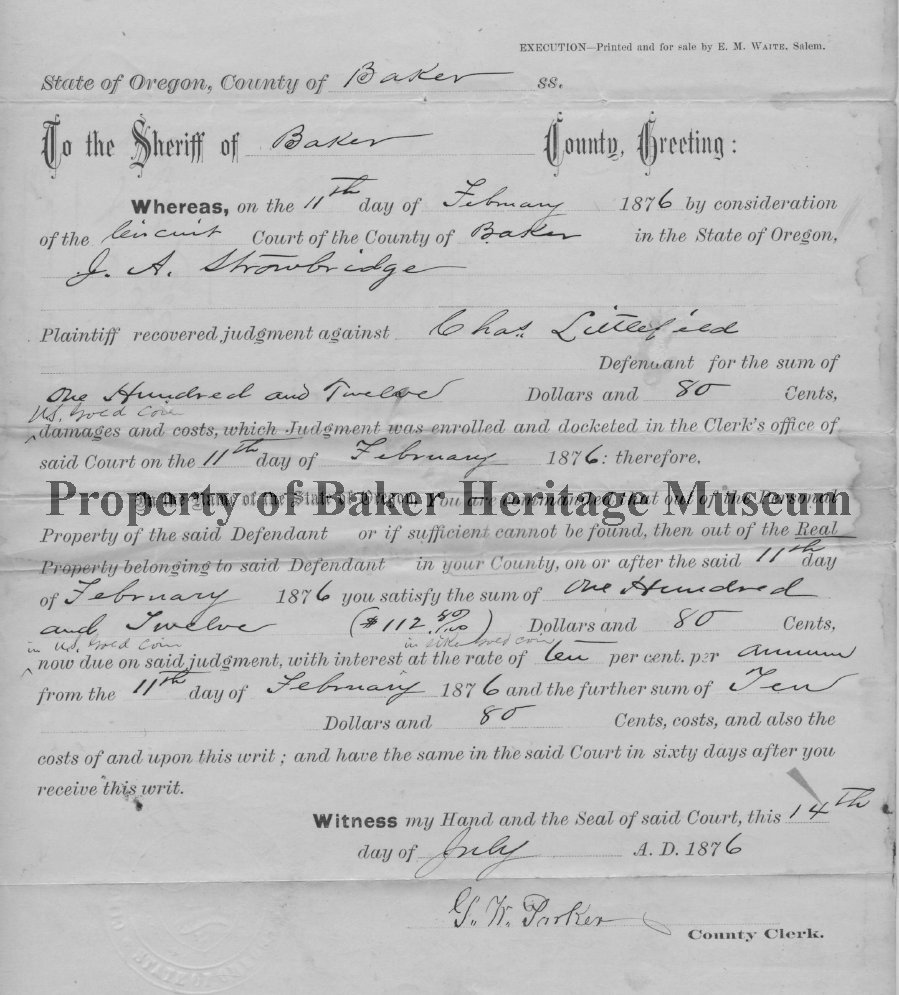 EXECUTION—Printed and for sale by E. M. WAITE, Salem.
State of Oregon, County of Baker ss.
To the Sheriff of Baker County, Greeting:
Whereas, on the 11th day of February 1876 by consideration
of the Circuit Court of the County of Baker in the State of Oregon,
J. A. Strowbridge
Plaintiff recovered judgment against Chas. Littlefield
Defendant for the sum of
One Hundred and Twelve Dollars and 80 Cents,
U.S. Gold Coin
damages and costs, which Judgment was enrolled and docketed in the Clerk's office of
said Court on the 11th day of February 1876: therefore,
In the Name of the State of Oregon, You are commanded that out of the Personal
Property of Baker Heritage Museum
Property of the said Defendant or if sufficient cannot be found, then out of the Real
Property belonging to said Defendant in your County, on or after the said 11th day
of February 1876 you satisfy the sum of One Hundred
and Twelve ($112 80/100) Dollars and 80 Cents,
in U.S. Gold Coin in like gold coin
now due on said judgment, with interest at the rate of ten per cent. per annum
from the 11th day of February 1876 and the further sum of Ten
Dollars and 80 Cents, costs, and also the
costs of and upon this writ; and have the same in the said Court in sixty days after you
receive this writ.
Witness my Hand and the Seal of said Court, this 14th
day of July A. D. 1876
G. W. Parker
County Clerk.